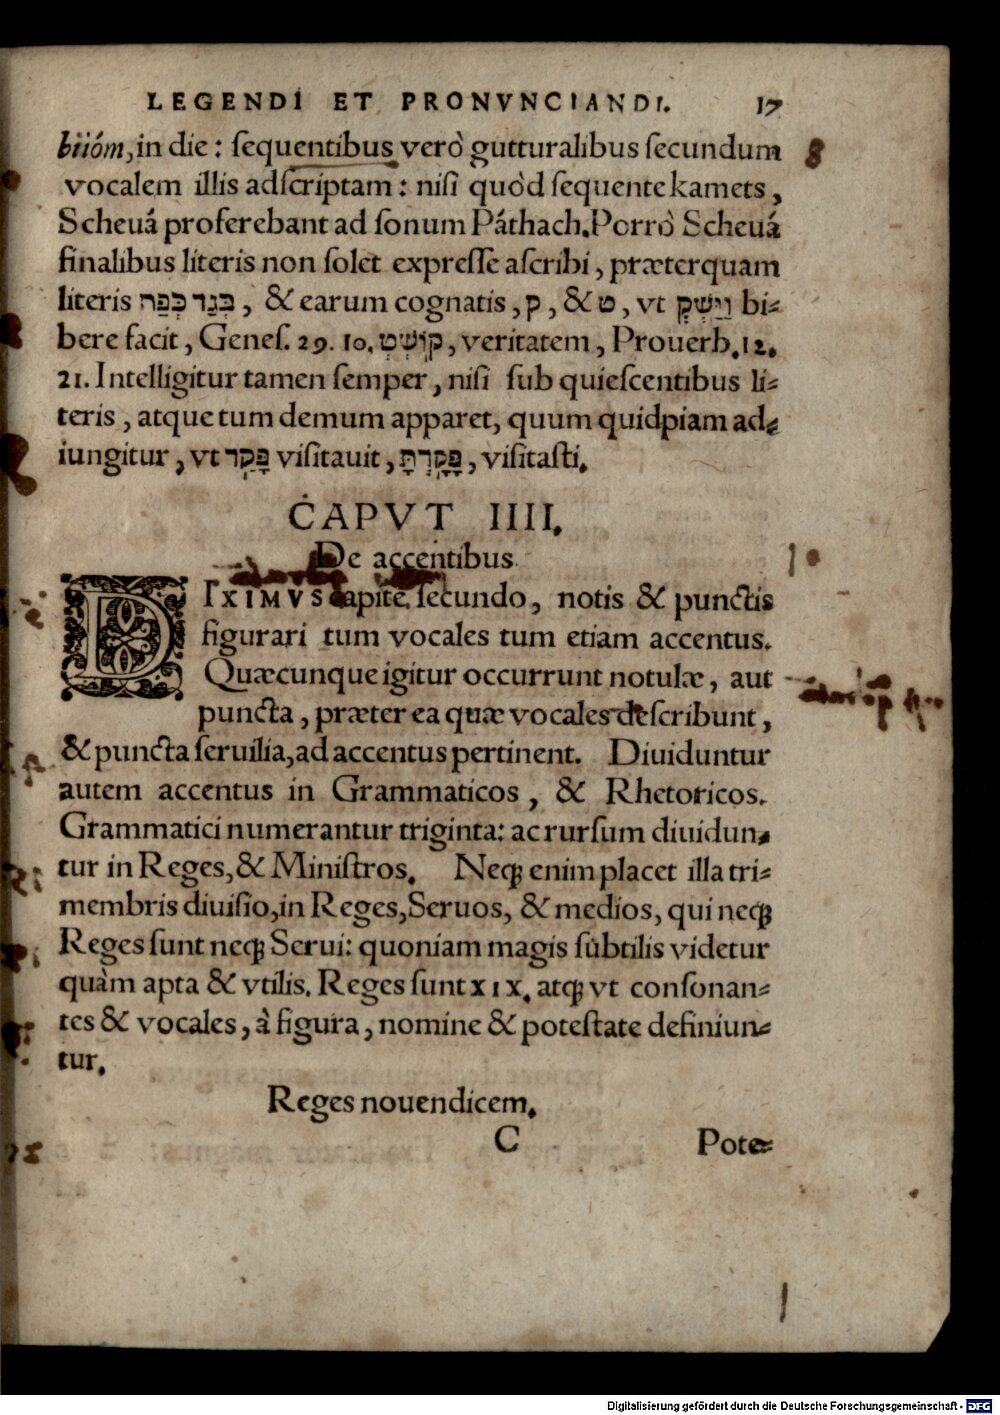 LEGENDI ET PRONVNCIANDI. 17
biióm, in die : ſequentibus verò gutturalibus ſecundum
vocalem illis adſcriptam : niſi quòd ſequente kamets,
Scheuá proferebant ad ſonum Páthach. Porrò Scheuá
finalibus literis non ſolet expreſſe aſcribi, præterquam
literis בְּגַד כְּפַת, & earum cognatis, ק, & ט, vt וַיַּשְׁקְ bi-
bere facit, Geneſ. 29. 10. קוֹשְׁטְ, veritatem, Prouerb. 12.
21. Intelligitur tamen ſemper, niſi ſub quieſcentibus li-
teris, atque tum demum apparet, quum quidpiam ad-
iungitur, vt פָּקַד viſitauit, פָּקַדְתָּ, viſitaſti.
CAPVT IIII.
De accentibus
DIXIMVS capite ſecundo, notis & punctis
figurari tum vocales tum etiam accentus.
Quæcunque igitur occurrunt notulæ, aut
puncta, præter ea quæ vocales deſcribunt,
& puncta ſeruilia, ad accentus pertinent. Diuiduntur
autem accentus in Grammaticos, & Rhetoricos.
Grammatici numerantur triginta: ac rurſum diuidun-
tur in Reges, & Miniſtros. Neqꝫ enim placet illa tri-
membris diuiſio, in Reges, Seruos, & medios, qui neqꝫ
Reges ſunt neqꝫ Serui: quoniam magis ſubtilis videtur
quàm apta & vtilis. Reges ſunt XIX. atqꝫ vt conſonan-
tes & vocales, à figura, nomine & poteſtate definiun-
tur.
Reges nouendicem.
C Pote-
Digitalisierung gefördert durch die Deutsche Forschungsgemeinschaft - DFG